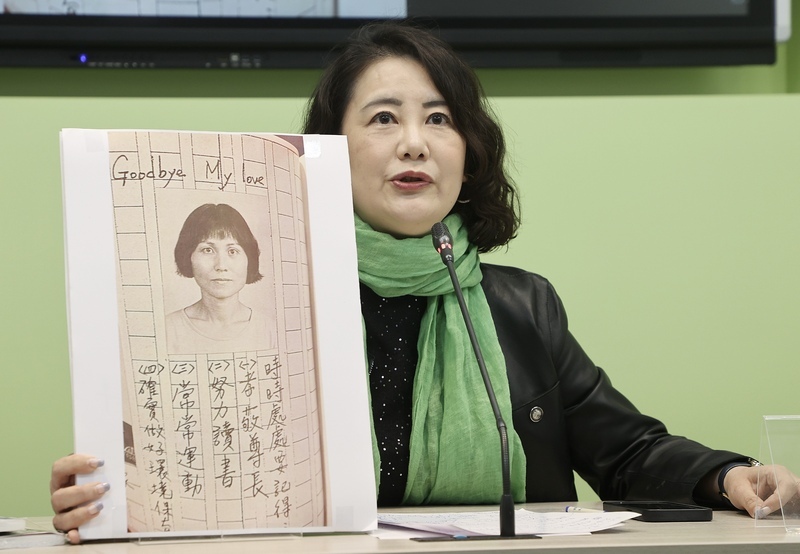 Goodbye My love
時時處處要記得：
(一)孝敬尊長
(二)努力讀書
(三)常常運動
(四)確實做好環境保